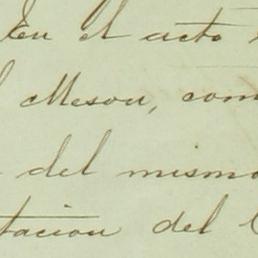 En el acto
Meson, com
del mismo
tacion del